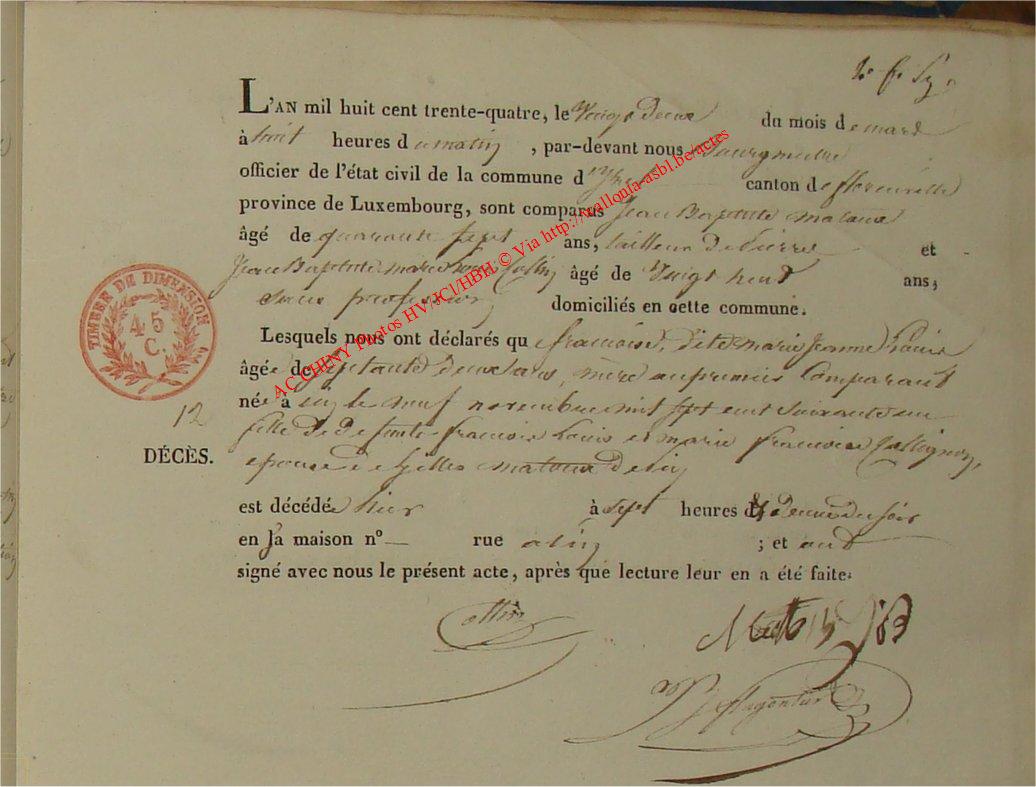 L'AN mil huit cent trente-quatre, le Vingt Deux du mois de mars
à huit heures du matin, par-devant nous Bourgmestre
officier de l'état civil de la commune d' canton de florenville
province de Luxembourg, sont comparus Jean Baptiste
âgé de quarante sept ans, tailleur de Pierre et
Jean Baptiste marie Collin âgé de Vingt huit ans;
sans profession domiciliés en cette commune.
Lesquels nous ont déclarés que francoise, dite marie jeanne Louis
âgée de septante Deux ans, mère au premier Comparant
née à le neuf novembre mil sept cent soixante un
fille de defunts francois Louis et marie francoise
epouse de Gilles
DÉCÈS.
12
est décédée hier à sept heures du soir
en sa maison n° — rue ; et ont
signé avec nous le présent acte, après que lecture leur en a été faite.
Collin
TIMBRE DE DIMENSION
45
C.
AC CHINY Photos HV/JCl/HBH © Via http://wallonia-asbl.be/actes